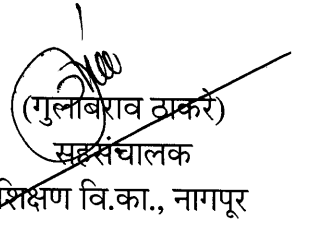 (गुलाबराव ठाकरे)
सहसंचालक
शिक्षण वि.का., नागपूर